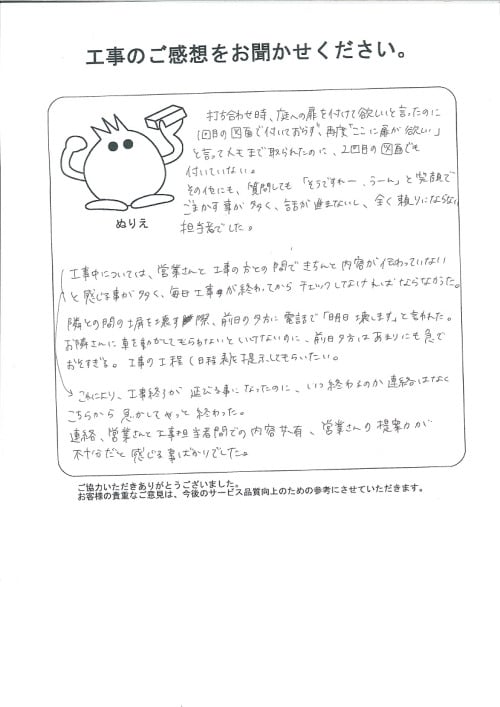 工事のご感想をお聞かせください。
打ち合わせ時、庭への扉を付けて欲しいと言ったのに
1回目の図面で付いておらず、再度"ここに扉が欲しい"
と言ってメモまで取られたのに、2回目の図面でも
付いていない。
その他にも、質問しても「そうですねー、うーん」と笑顔で
ごまかす事が多く、話が進まないし、全く頼りにならない
担当者でした。
ぬりえ
工事中については、営業さんと工事の方との間できちんと内容が伝わっていない
と感じる事が多く、毎日工事が終わってからチェックしなければならなかった。
隣との間の塀を壊す際、前日の夕方に電話で「明日壊します」と言われた。
お隣さんに車を動かしてもらわないといけないのに、前日夕方はあまりにも急で
おそすぎる。工事の工程(日程)表を提示してもらいたい。
これにより、工事終了が延びる事になったのに、いつ終わるのか連絡はなく
こちらから急かしてやっと終わった。
連絡、営業さんと工事担当者間での内容共有、営業さんの提案力が
不十分だと感じる事ばかりでした。
ご協力いただきありがとうございました。
お客様の貴重なご意見は、今後のサービス品質向上のための参考にさせていただきます。